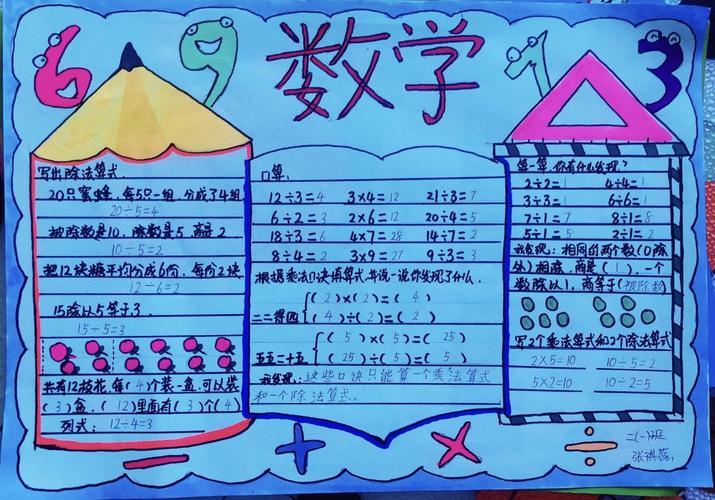 6 9 数学 1 3
写出除法算式.
20只蜜蜂,每5只一组,分成了4组
20÷5=4
被除数是10,除数是5,商是2
10÷5=2
把12块糖平均分成6份,每份2块
12÷6=2
15除以5等于3.
15÷5=3
共有12枝花,每(4)个装一盒,可以装
(3)盒.(12)里面有(3)个(4)
列式: 12÷4=3
口算:
12÷3=4 3×4=12 21÷3=7
6÷2=3 2×6=12 20÷4=5
18÷3=6 4×7=28 14÷7=2
8÷4=2 3×9=27 9÷3=3
根据乘法口诀填算式并说一说你发现了什么.
二二得四
(2)×(2)=(4)
(4)÷(2)=(2)
五五二十五
(5)×(5)=(25)
(25)÷(5)=(5)
我发现:这些口诀只能算一个乘法算式
和一个除法算式.
算一算,你有什么发现?
2÷2=1 4÷4=1
3÷3=1 6÷6=1
7÷1=7 8÷1=8
5÷1=5 2÷1=2
我发现:相同的两个数(0除
外)相除,商是(1),一个
数除以1,商等于(被除数)
写2个乘法算式和2个除法算式
2×5=10 10÷5=2
5×2=10 10÷2=5
二(一)班
张琪蕊